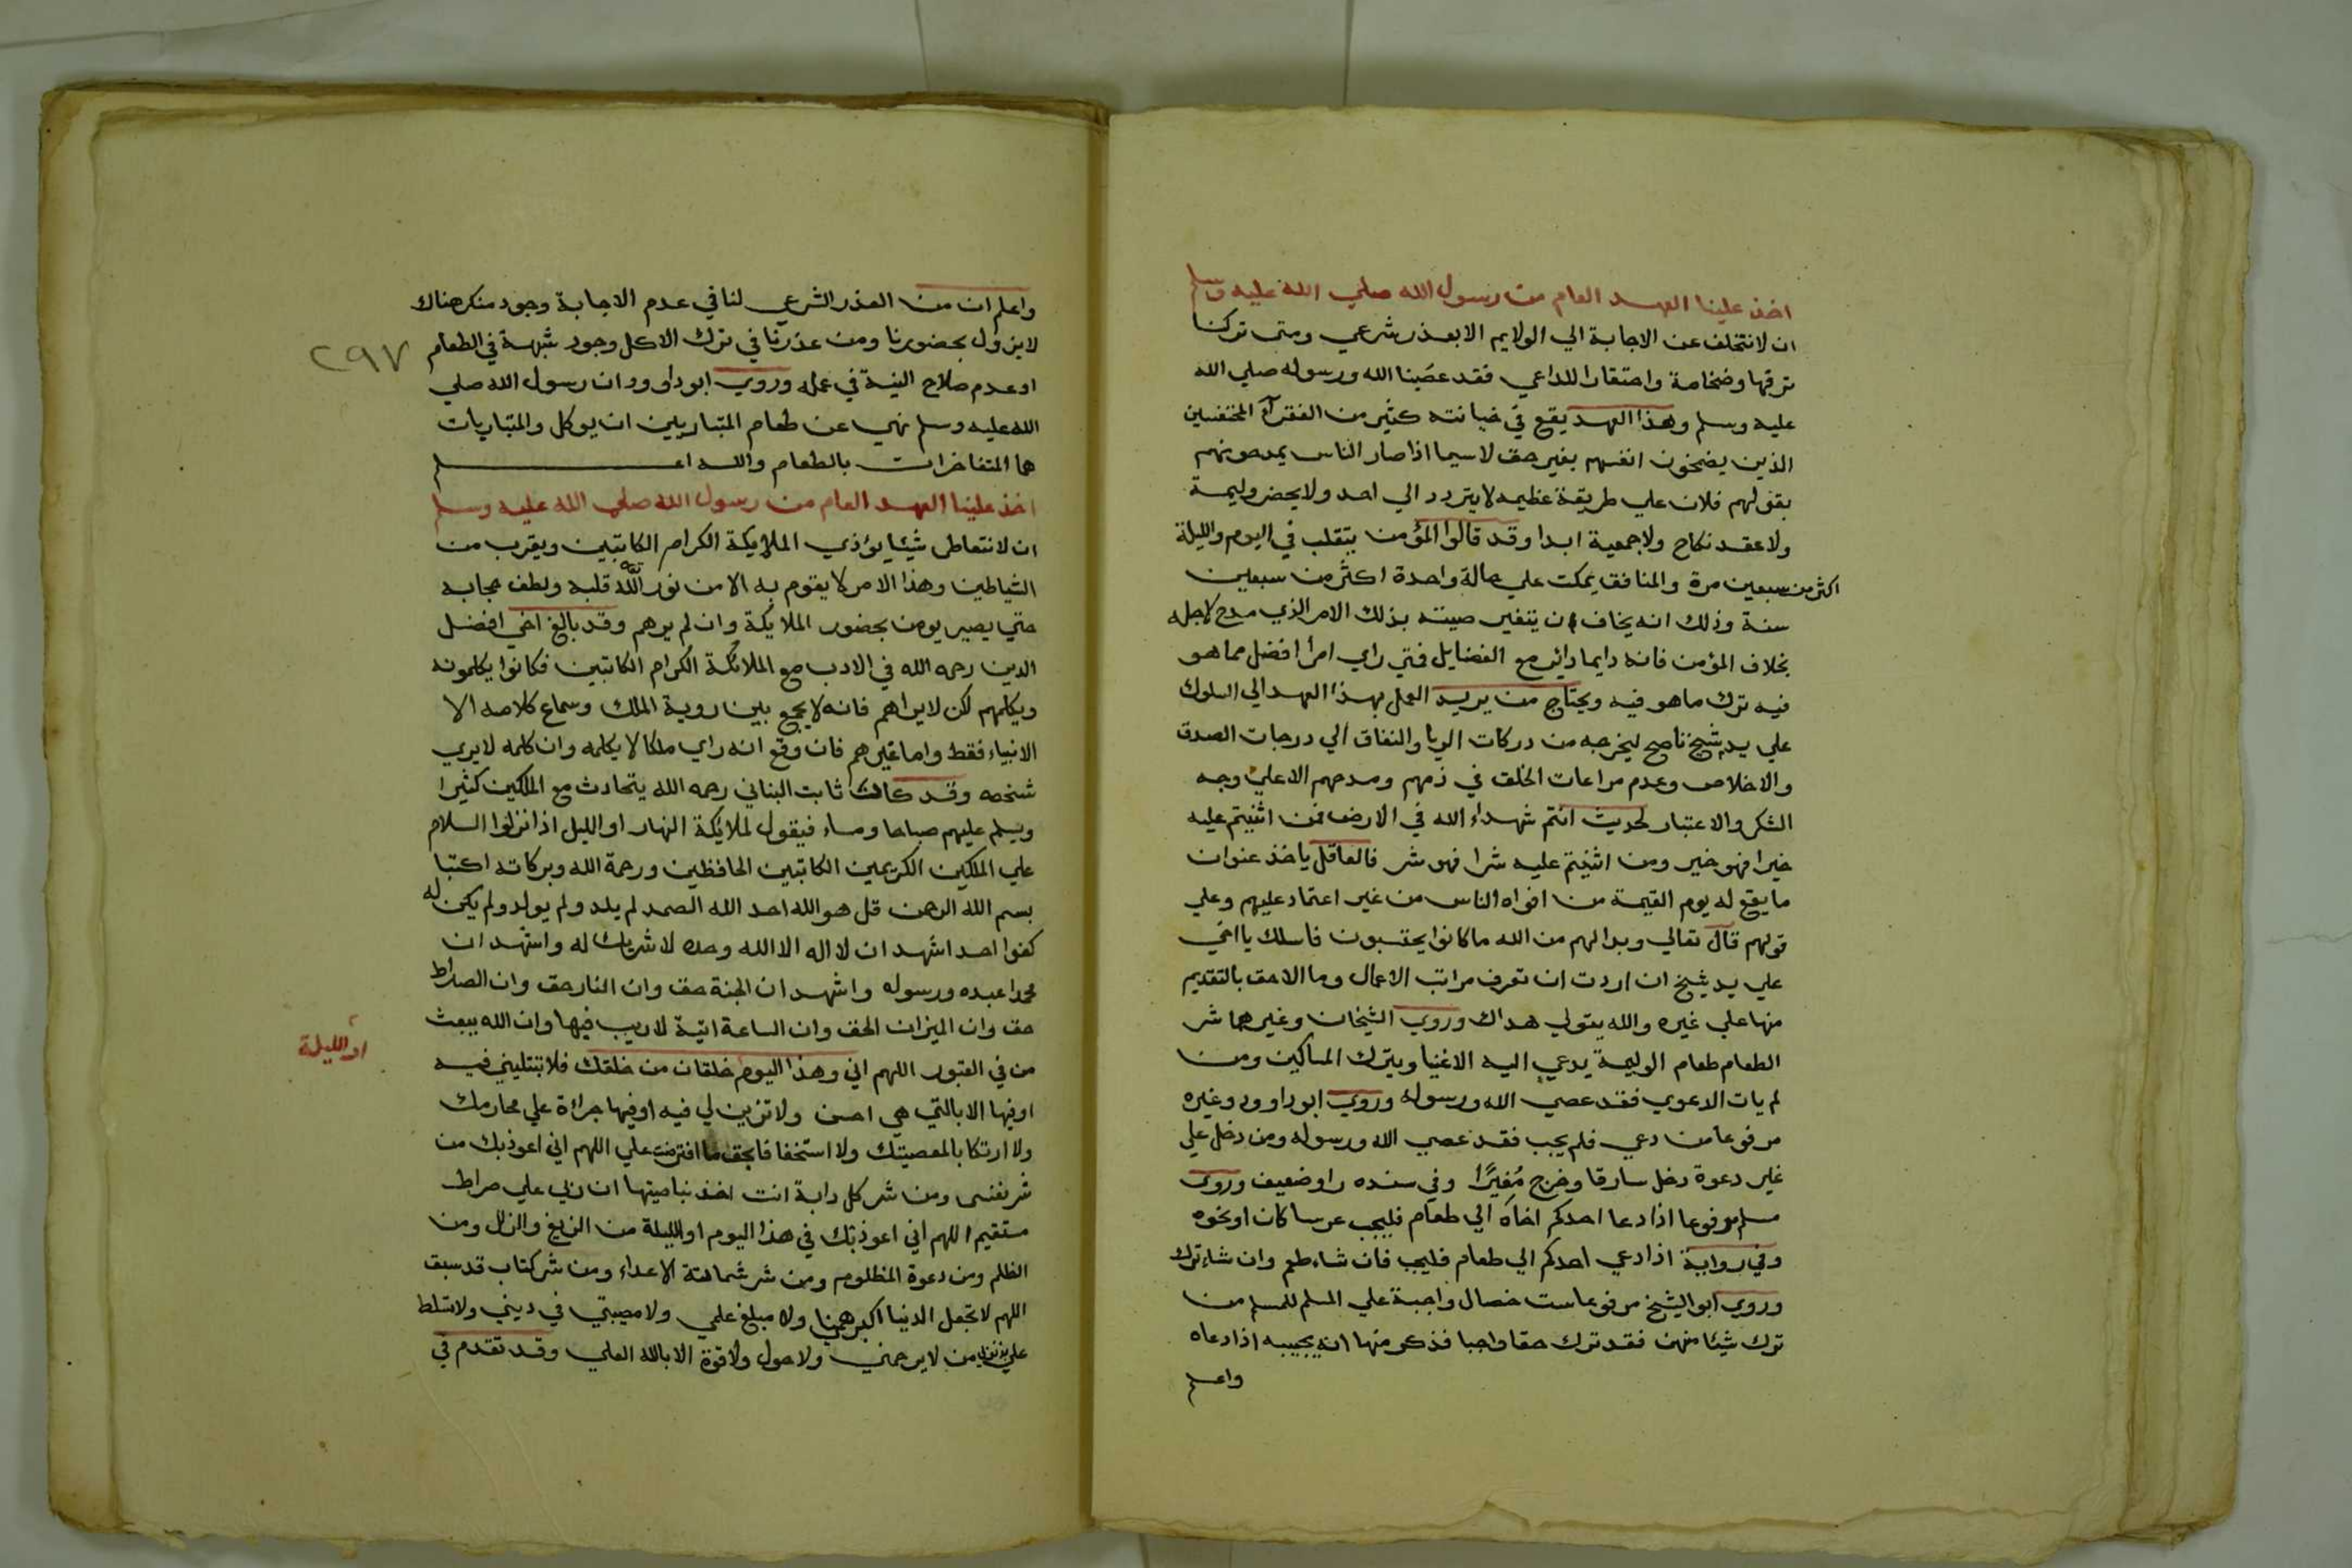 اخذ علينا العهد العام من رسول الله صلي الله عليه وسلم
ان لا نتخلف عن الاجابة الي الولايم الا بعذر شرعي ومتي تركنا
ترفها وضخامة واحتقارا للداعي فقد عصَينا الله ورسوله صلي الله
عليه وسلم وهذا العهد يقع في خيانته كثير من الفقرآء المختفيين
الذين يضخون انفسهم بغير حق لا سيما اذا صار الناس يمدحونهم
بقولهم فلان علي طريقة عظيمه لا يتردد الي احد ولا يحضر وليمة
ولا عقد نكاح ولا جمعية ابدا وقد قالوا المؤمن يتقلب في اليوم والليلة
اكثر من سبعين مرة والمنافق يمكث علي حالة واحدة اكثر من سبعين
سنة وذلك انه يخاف ان يتغير صيته بذلك الامر الذي مدح لاجله
بخلاف المؤمن فانه دايما داير مع الفضايل فمتي راي امرأ افضل مما هو
فيه ترك ما هو فيه ويحتاج من يريد العمل بهذا العهد الي السلوك
علي يد شيخ ناصح ليخرجه من دركات الريا والنفاق الي درجات الصدق
والاخلاص وعدم مراعات الخلق في ذمهم ومدحهم الا علي وجه
الشكر والاعتبار لحديث انتم شهداء الله في الارض فمن اثنيتم عليه
خيرا فهو خير ومن اثنيتم عليه شرا فهو شر فالعاقل ياخذ عنوان
ما يقع له يوم القيمة من افواه الناس من غير اعتماد عليهم وعلي
قولهم قال تعالي وبدا لهم من الله ما كانوا يحتسبون فاسلك يا اخي
علي يد شيخ ان اردت ان تعرف مراتب الاعمال وما الاحق بالتقديم
منها علي غيره والله يتولي هداك وروي الشيخان وغيرهما شر
الطعام طعام الوليمة يدعي اليه الاغنيا ويترك المساكين ومن
لم يات الدعوي فقد عصي الله ورسوله وروي ابو داوود وغيره
مرفوعا من دعي فلم يجب فقد عصي الله ورسوله ومن دخل علي
غير دعوة دخل سارقا وخرج مُغيرًا وفي سنده راو ضعيف وروي
مسلم مرفوعا اذا دعا احدكم اخاه الي طعام فليجب عرسا كان او نحوه
وفي رواية اذا دعي احدكم الي طعام فليجب فان شاء طعم وان شاء ترك
وروي ابو الشيخ مرفوعا ست خصال واجبة علي المسلم للمسلم من
ترك شيئا منهن فقد ترك حقا واجبا فذكر منها انه يجيبه اذا دعاه
واعلم
واعلم ان من العذر الشرعي لنا في عدم الاجابة وجود منكر هناك
لا يزول بحضورنا ومن عذرنا في ترك الاكل وجود شبهة في الطعام
٢٩٧
او عدم صلاح النية في عمله وروي ابو داوود ان رسول الله صلي
الله عليه وسلم نهي عن طعام المتباريين ان يوكل والمتباريات
هما المتفاخرات بالطعام والله اعلم
اخذ علينا العهد العام من رسول الله صلي الله عليه وسلم
ان لا نتعاطي شيئا يؤذي الملايكة الكرام الكاتبين ويقرب من
الشياطين وهذا الامر لا يقوم به الا من نور الله قلبه ولطف حجابه
حتي يصير يومن بحضور الملائكة وان لم يرهم وقد بالغ اخي افضل
الدين رحمه الله في الادب مع الملائكة الكرام الكاتبين فكانوا يكلمونه
ويكلمهم لكن لا يراهم فانه لا يجمع بين روية الملك وسماع كلامه الا
الانبياء فقط واما غيرهم فان وقع انه راي ملكا لا يكلمه وان كلمه لا يري
شخصه وقد كان ثابت البناني رحمه الله يتحادث مع الملكين كثيرا
ويسلم عليهم صباحا ومساء فيقول لملائكة النهار او الليل اذا نزلوا السلام
علي الملكين الكريمين الكاتبين الحافظين ورحمة الله وبركاته اكتبا
بسم الله الرحمن قل هو الله احد الله الصمد لم يلد ولم يولد ولم يكن له
كفوا احد اشهد ان لا اله الا الله وحده لا شريك له واشهد ان
محمدا عبده ورسوله واشهد ان الجنة حق وان النار حق وان الصراط
حق وان الميزان الحق وان الساعة اتية لا ريب فيها وان الله يبعث
من في القبور اللهم اني وهذا اليوم خلقان من خلقك فلا تبتليني فيه
او الليلة
او فيها الا بالتي هي احسن ولا تزين لي فيه او فيها جرائة علي محارمك
ولا ارتكابا لمعصيتك ولا استخفافا بحق ما افترضت علي اللهم اني اعوذ بك من
شر نفسي ومن شر كل دابة انت اخذ بناصيتها ان ربي علي صراط
مستقيم اللهم اني اعوذ بك في هذا اليوم او الليلة من الزيغ والزلل ومن
الظلم ومن دعوة المظلوم ومن شر شماتة الاعداء ومن شر كتاب قد سبق
اللهم لا تجعل الدنيا اكبر همنا ولا مبلغ علمي ولا مصيبتي في ديني ولا تسلط
علي بذنوبي من لا يرحمني ولا حول ولا قوة الا بالله العلي وقد تقدم في